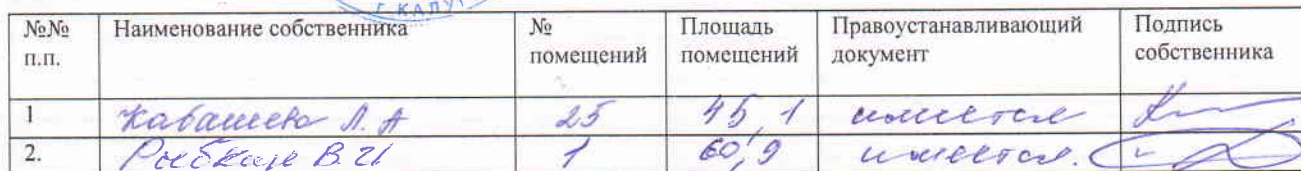 Г. КАЛУГ
№№ п.п. Наименование собственника № помещений Площадь помещений Правоустанавливающий документ Подпись собственника
1 Кабашева Л. А 25 45,1 имеется
2. В. И 1 60,9 имеется.